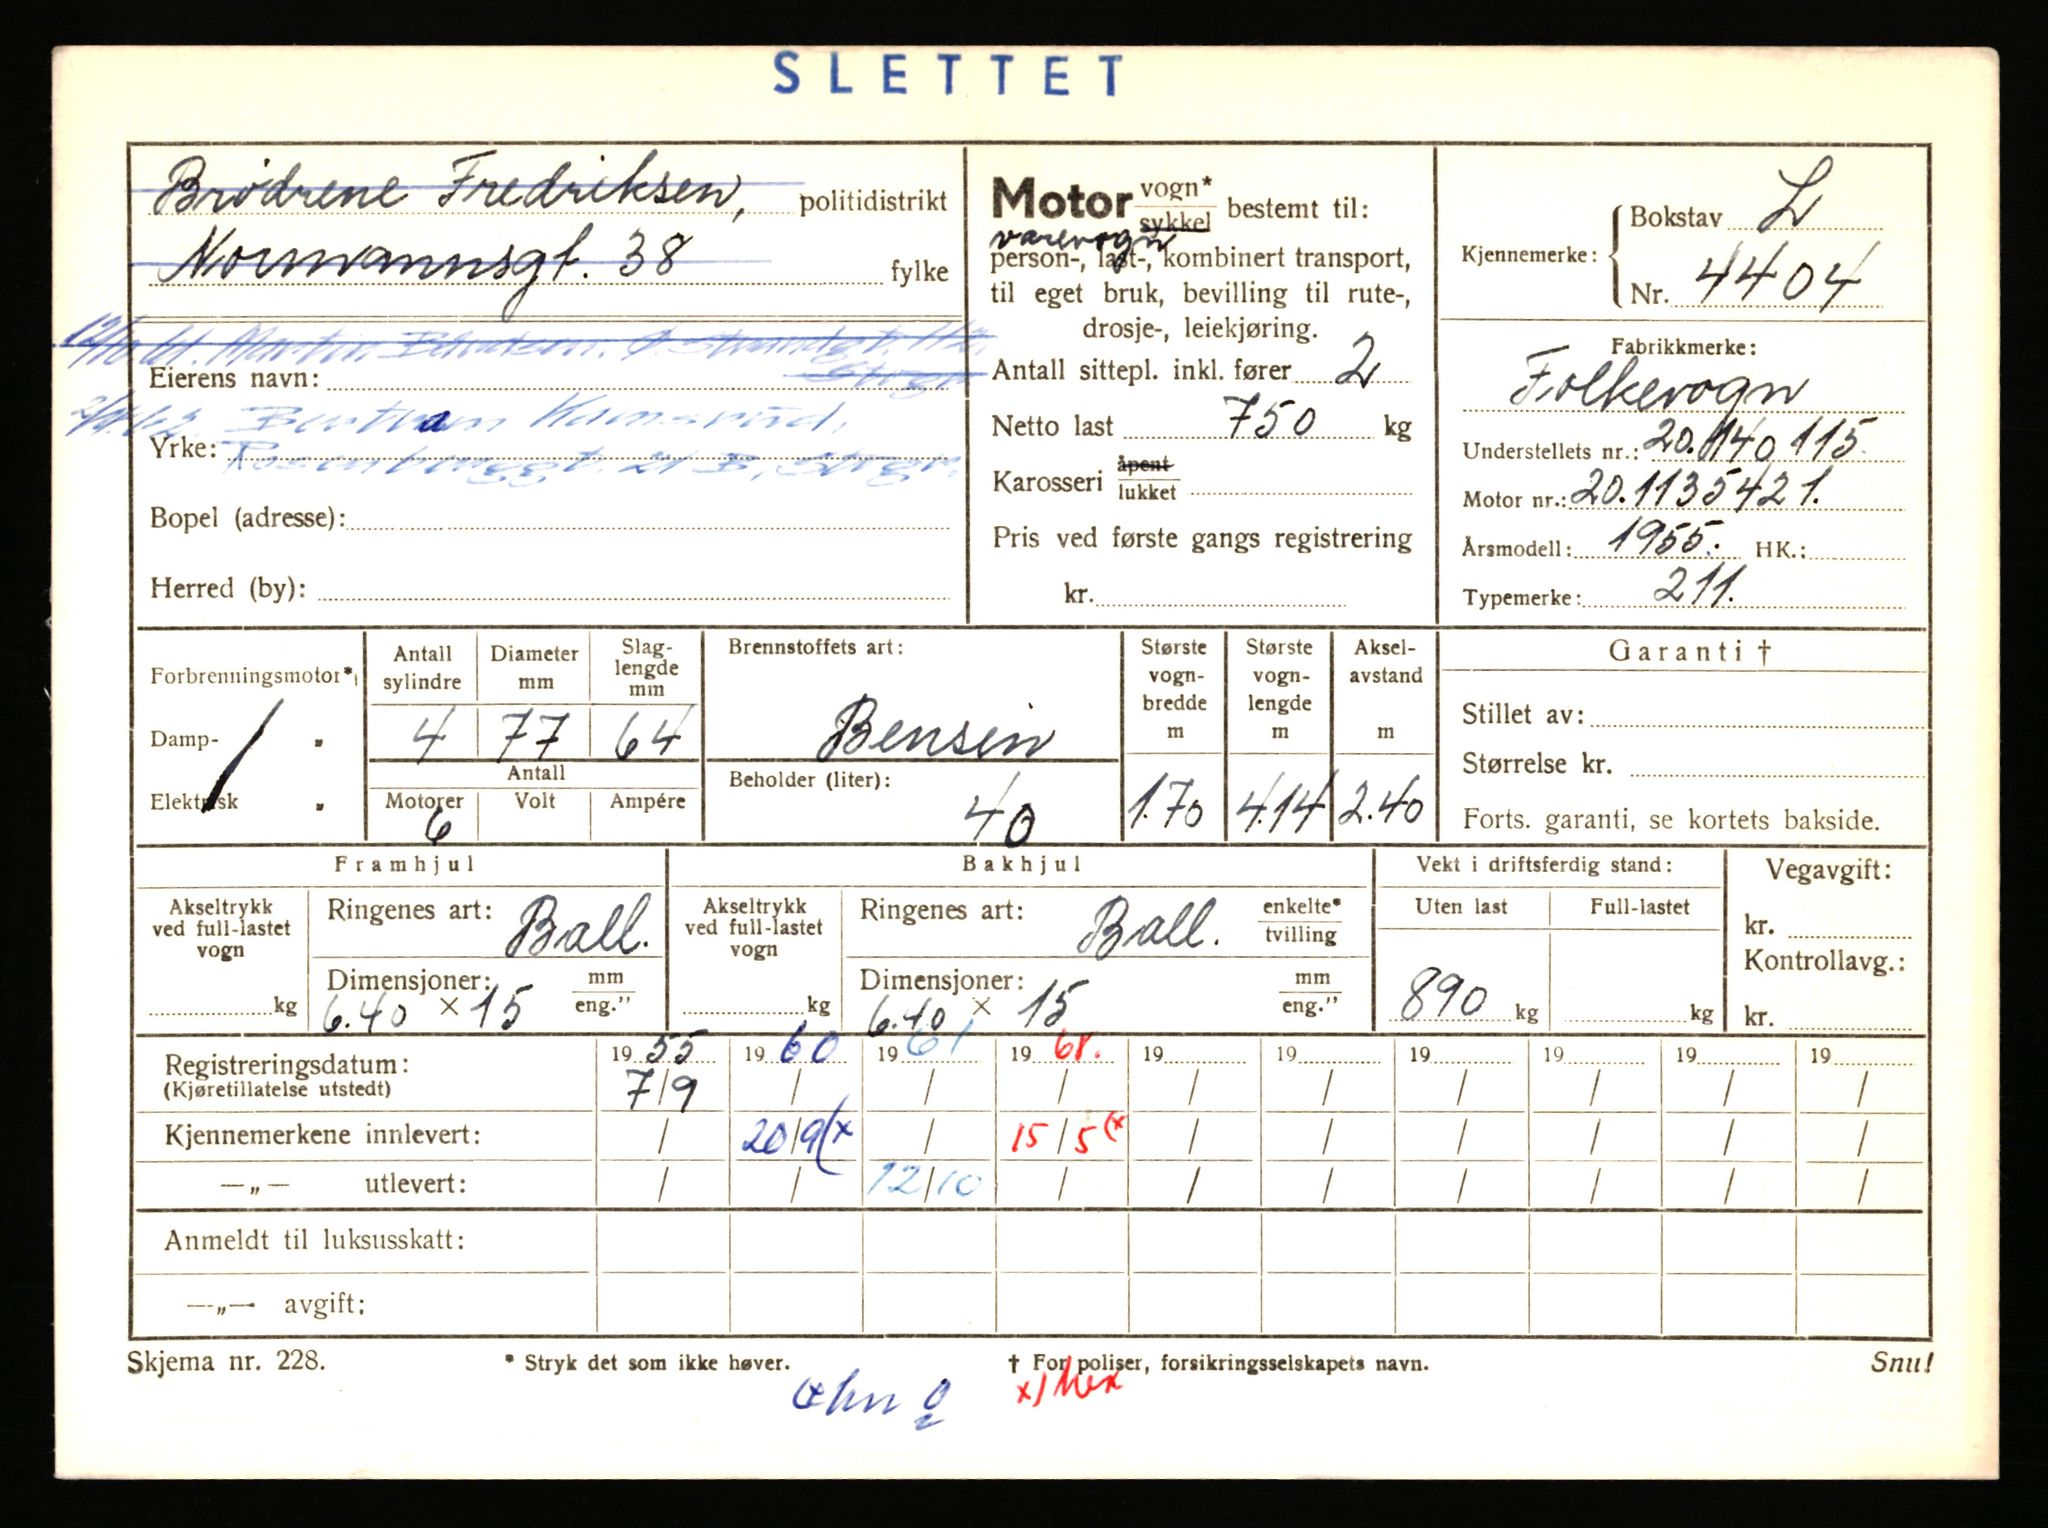 SLETTET
Brødrene Fredriksen, politidistrikt
Normannsgt. 38 fylke
12/10 61. Martin Ø. Strandgt. 112,
Eierens navn: Stvgr
2/ Bertram Kamsrud,
Yrke: Rosenberggt. 21 B, Stvgr.
Bopel (adresse):
Herred (by):
Motor vogn* sykkel bestemt til:
varevogn
person-, last-, kombinert transport,
til eget bruk, bevilling til rute-,
drosje-, leiekjøring.
Antall sittepl. inkl. fører 2
Netto last 750 kg
Karosseri åpent lukket
Pris ved første gangs registrering
kr.
Kjennemerke: Bokstav L
Nr. 4404
Fabrikkmerke:
Folkevogn
Understellets nr.: 20.140115.
Motor nr.: 20.1135421.
Årsmodell: 1955. HK.:
Typemerke: 211.
Forbrenningsmotor*)
Damp- „
Elektrisk „
Antall sylindre Diameter mm Slag-lengde mm
4 77 64
Antall
Motorer Volt Ampére
6
Brennstoffets art:
Bensin
Beholder (liter):
40
Største vogn-bredde m Største vogn-lengde m Aksel-avstand m
1.70 4.14 2.40
Garanti †
Stillet av:
Størrelse kr.
Forts. garanti, se kortets bakside.
Framhjul
Akseltrykk ved full-lastet vogn
kg
Ringenes art: Ball.
Dimensjoner: mm
6.40 × 15 eng.”
Bakhjul
Akseltrykk ved full-lastet vogn
kg
Ringenes art: Ball. enkelte* tvilling
Dimensjoner: mm
6.40 × 15 eng.”
Vekt i driftsferdig stand:
Uten last Full-lastet
890 kg kg
Vegavgift:
kr.
Kontrollavg.:
kr.
Registreringsdatum: 19 55 19 60 19 61 19 68. 19 19 19 19 19 19
(Kjøretillatelse utstedt) 7/9 / / / / / / / / /
Kjennemerkene innlevert: / 20/9(x / 15/5(x / / / / / /
—„— utlevert: / / 12/10 / / / / / / /
Anmeldt til luksusskatt:
—„— avgift:
Skjema nr. 228. * Stryk det som ikke høver. † For poliser, forsikringsselskapets navn. Snu!